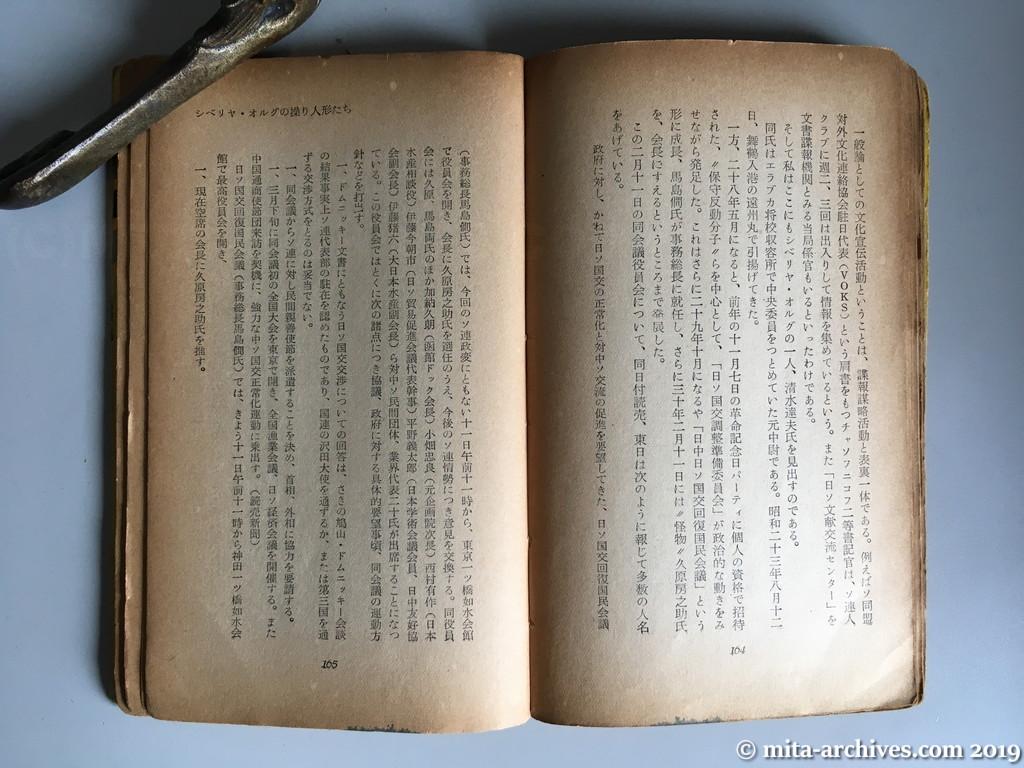 一般論としての文化宣伝活動ということは、諜報謀略活動と表裏一体である。例えばソ同盟
対外文化連絡協会駐日代表（VOKS）という肩書をもつチャソフニコフ二等書記官は、ソ連人
クラブに週二、三回は出入りして情報を集めているという。また「日ソ文献交流センター」を
文書諜報機関とみる当局係官もいるといったわけである。
そして私はここにもシベリヤ・オルグの一人、清水達夫氏を見出すのである。
同氏はエラブカ将校収容所で中央委員をつとめていた元中尉である。昭和二十三年八月十二
日、舞鶴入港の遠州丸で引揚げてきた。
一方、二十八年五月になると、前年の十一月七日の革命記念日パーティに個人の資格で招待
された、〃保守反動分子〃らを中心として、「日ソ国交調整準備委員会」が政治的な動きをみ
せながら発足した。これはさらに二十九年十月になるや「日中日ソ国交回復国民会議」という
形に成長、馬島僴氏が事務総長に就任し、さらに三十年二月十一日には〃怪物〃久原房之助氏
を、会長にすえるというところまで発展した。
この二月十一日の同会議役員会について、同日付読売、東日は次のように報じて多数の人名
をあげている。
政府に対し、かねて日ソ国交の正常化と対中ソ交流の促進を要望してきた、日ソ国交回復国民会議
164
シベリヤ・オルグの操り人形たち
（事務総長馬島僴氏）では、今回のソ連政変にともない十一日午前十一時から、東京一ツ橋如水会館
で役員会を開き、会長に久原房之助氏を選任のうえ、今後のソ連情勢につき意見を交換する。同役員
会には久原、馬島両氏のほか加納久朗（函館ドック会長）小畑忠良（元企画院次長）西村有作（日本
水産相談役）伊藤今朝市（日ソ貿易促進会議代表幹事）平野義太郎（日本学術会議会員、日中友好協
会副会長）伊藤猪六（大日本水産副会長）ら対中ソ民間団体、業界代表二十氏が出席することになつ
ている。この役員会ではとくに次の諸点につき協議、政府に対する具体的要望事項、同会議の運動方
針などを打出す。
一、ドムニッキー文書にともなう日ソ国交渉についての回答は、さきの鳩山・ドムニッキー会談
の結果事実上ソ連代表部の駐在を認めたものであり、国連の沢田大使を通ずるか、または第三国を通
ずる交渉方式をとるのは妥当でない。
一、同会議からソ連に対し民間親善使節を派遣することを決め、首相、外相に協力を要請する。
一、三月下旬に同会議初の全国大会を東京で開き、全国漁業会議、日ソ経済会議を開催する。また
中国通商使節団来訪を契機に、強力な中ソ国交正常化運動に乗出す。（読売新聞）
日ソ国交回復国民会議（事務総長馬島僴氏）では、きょう十一日午前十一時から神田一ツ橋如水会
館で最高役員会を開き、
一、現在空席の会長に久原房之助氏を推す。
165
© mita-archives.com 2019